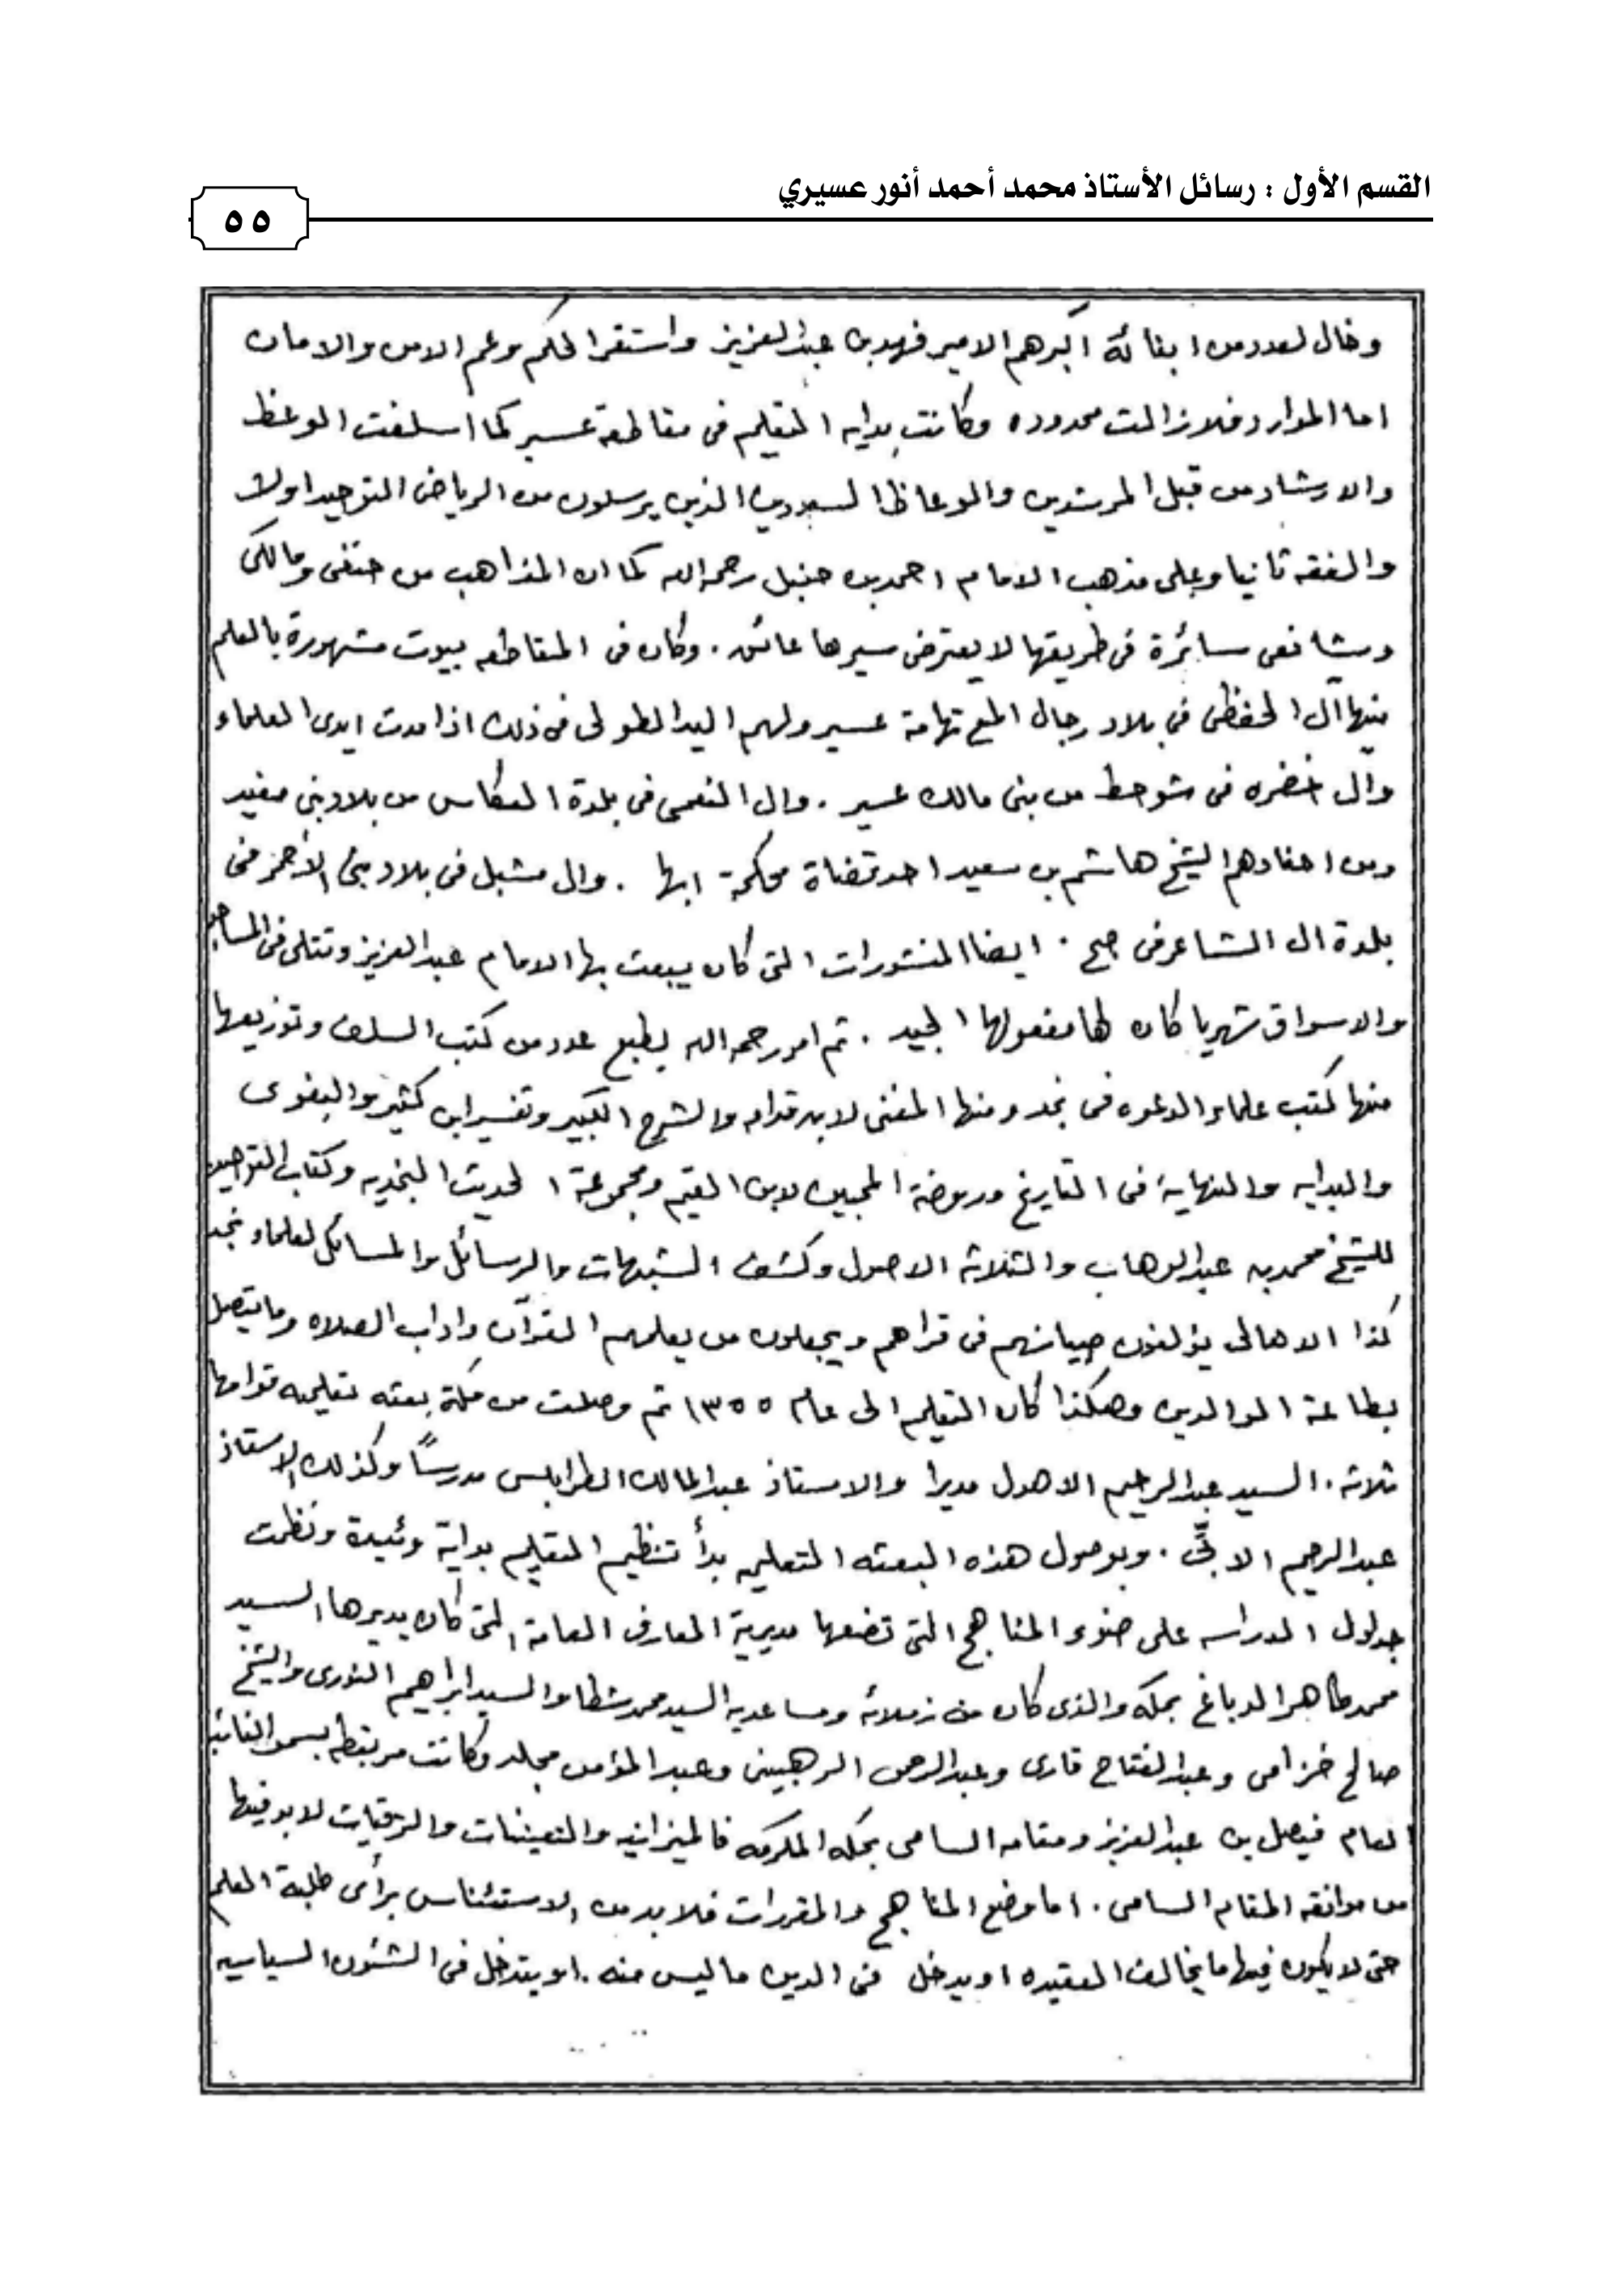 القسم الأول : رسائل الأستاذ محمد أحمد أنور عسيري
٥٥
وخال لعدد من ابنائه اكبرهم الامير فهد بن عبدالعزيز واستقر الحكم وعم الامن والامان
اما الموارد فلازالت محدوده وكانت بدايه التعليم فى مقاطعة عسير كما اسلفت الوعظ
والارشاد من قبل المرشدين والوعاظ السعوديين الذين يرسلون من الرياض التوحيد اولا
والفقه ثانيا وعلى مذهب الامام احمد بن حنبل رحمه الله كما ان المذاهب من حنفى ومالكى
وشافعى سائرة فى طريقها لا يعترض سيرها عائق . وكان فى المقاطعه بيوت مشهورة بالعلم
منها آل الحفظى فى بلاد رجال المع تهامة عسير ولهم اليد الطولى فى ذلك اذا مدت ايدى العلماء
وال خضره فى شوحط من بنى مالك عسير . وال النعمى فى بلدة العكاس من بلاد بنى مغيد
ومن احفادهم الشيخ هاشم بن سعيد احد قضاة محكمة ابها . وال مشبل فى بلاد بنى الأحمر فى
بلدة ال الشاعر فى صبح . ايضا المنشورات التى كان يبعث بها الامام عبدالعزيز وتتلى فى المساجد
والاسواق شهريا كان لها مفعولها الجيد . ثم امر رحمه الله بطبع عدد من كتب السلف وتوزيعها
منها كتب علماء الدعوه فى نجد ومنها المغنى لابن قدامه والشرح الكبير وتفسير ابن كثير والبغوى
والبدايه والنهاية فى التاريخ وروضة المحبين لابن القيم ومجموعة الحديث النجديه وكتاب التوحيد
للشيخ محمد بن عبدالوهاب والثلاثة الاصول وكشف الشبهات والرسائل والمسائل لعلماء نجد
كذا الاهالى يؤلفون صبيانهم فى قراهم ويجعلون من يعلمهم القرآن واداب الصلاه وما يتصل
بطاعة الوالدين وهكذا كان التعليم الى عام ١٣٥٥ ثم وصلت من مكة بعثه تعليميه قوامها
ثلاثة . السيد عبدالرحيم الاهدل مديرا والاستاذ عبدالمالك الطرابلسى مدرساً وكذلك الاستاذ
عبدالرحيم . وبوصول هذه البعثه التعليميه بدأ تنظيم التعليم بداية وئيدة ونظمت
جداول الدراسه على ضوء المناهج التى تضعها مديرية المعارف العامة التى كان يديرها السيد
محمد طاهر الدباغ بمكه والذى كان من زملائه ومساعديه السيد محمد شطا والسيد ابراهيم النورى والشيخ
صالح خزامى وعبدالفتاح قارى وعبدالرحمن الرهبينى وعبدالمؤمن مجلد وكانت مرتبطه بسمو النائب
العام فيصل بن عبدالعزيز ومقامه السامى بمكه المكرمه فالميزانيه والتعيينات والترقيات لابد فيها
من موافقه المقام السامى . اما وضع المناهج والمقررات فلابد من الاستئناس برأى طلبة العلم
حتى لايكون فيها ما يخالف العقيده او يدخل فى الدين ما ليس منه . او يتدخل فى الشئون السياسيه